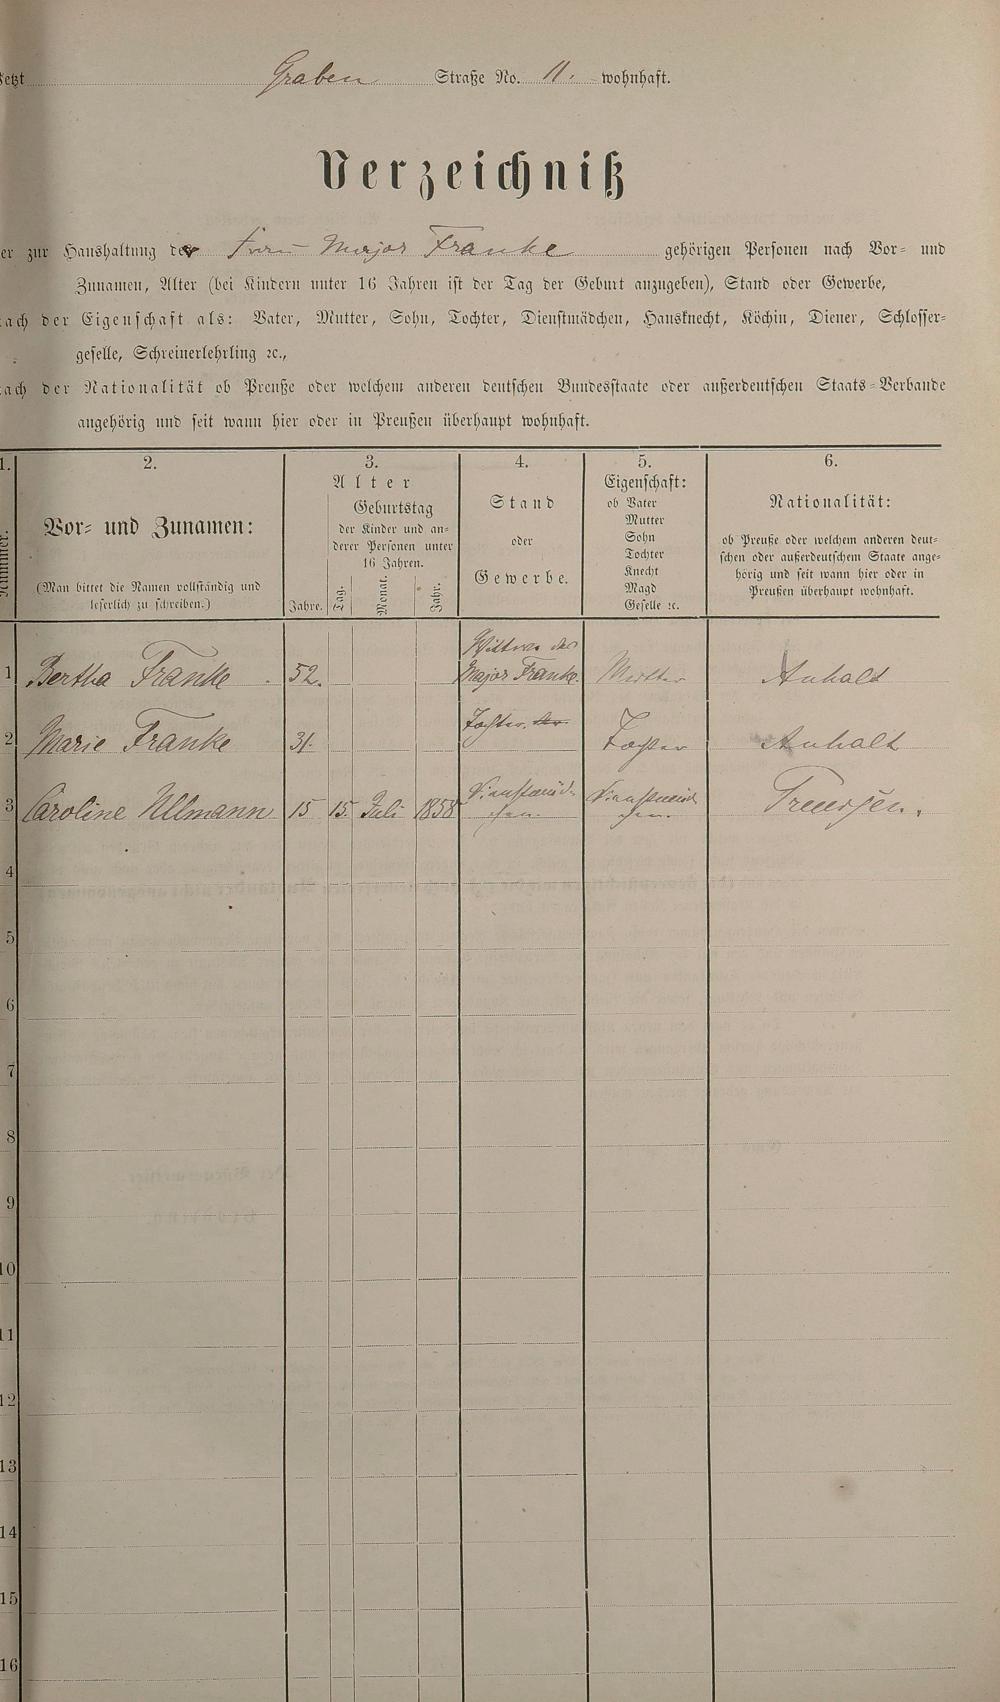 Jetzt Graben Straße No. 11. wohnhaft.
Verzeichniß
er zur Haushaltung der Frau Major Franke gehörigen Personen nach Vor- und
Zunamen, Alter (bei Kindern unter 16 Jahren ist der Tag der Geburt anzugeben), Stand oder Gewerbe,
nach der Eigenschaft als: Vater, Mutter, Sohn, Tochter, Dienstmädchen, Hausknecht, Köchin, Diener, Schlosser-
geselle, Schreinerlehrling ꝛc.,
nach der Nationalität ob Preuße oder welchem anderen deutschen Bundesstaate oder außerdeutschen Staats-Verbande
angehörig und seit wann hier oder in Preußen überhaupt wohnhaft.
1. 2. 3. 4. 5. 6.
Nummer.
Vor- und Zunamen:
(Man bittet die Namen vollständig und
leserlich zu schreiben.)
Alter
Jahre.
Geburtstag
der Kinder und an-
derer Personen unter
16 Jahren.
Tag. Monat. Jahr.
Stand
oder
Gewerbe.
Eigenschaft:
ob Vater
Mutter
Sohn
Tochter
Knecht
Magd
Geselle ꝛc.
Nationalität:
ob Preuße oder welchem anderen deut-
schen oder außerdeutschem Staate ange-
hörig und seit wann hier oder in
Preußen überhaupt wohnhaft.
1 Bertha Franke 52. Wittwe des Major Franke. Mutter Anhalt
2 Marie Franke 31. Tochter der Tochter Anhalt
3 Caroline Ullmann 15 15. Juli 1858 Dienstmäd- chen. Dienstmäd- chen. Preussen.
4
5
6
7
8
9
10
11
12
13
14
15
16